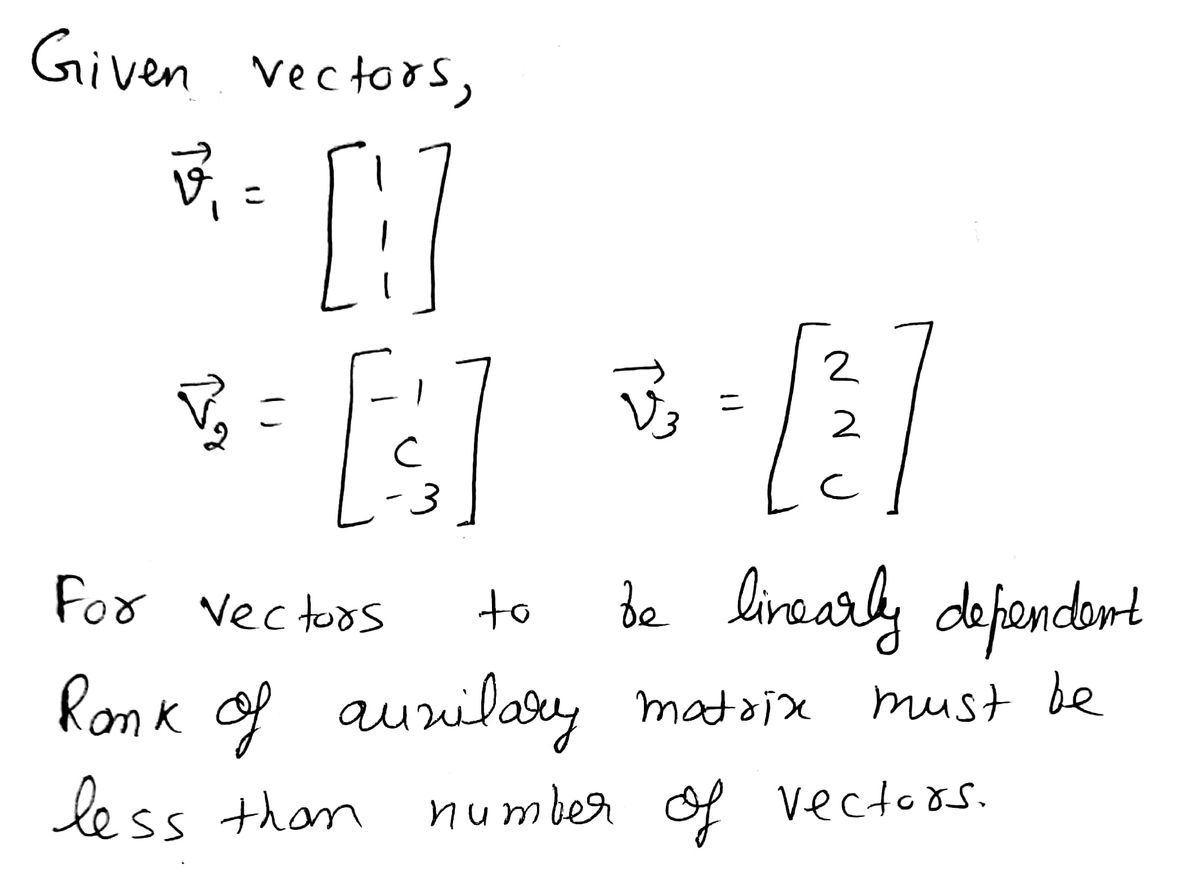 Given vectors,
v⃗₁ = [1
1
1]
v⃗₂ = [-1
c
-3] v⃗₃ = [2
2
c]
For vectors to be linearly dependent
Rank of auxilary matrix must be
less than number of vectors.